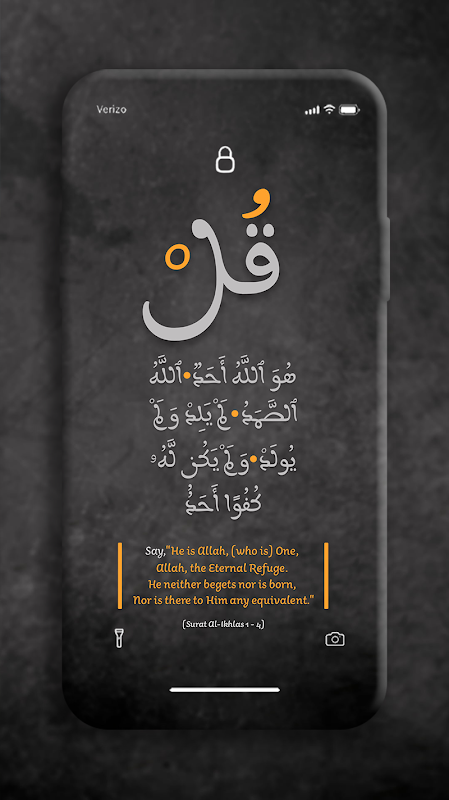 Verizo
قُلْ
هُوَ ٱللَّهُ أَحَدٌ • ٱللَّهُ
ٱلصَّمَدُ • لَمْ يَلِدْ وَلَمْ
يُولَدْ • وَلَمْ يَكُن لَّهُۥ
كُفُوًا أَحَدٌۢ
Say,"He is Allah, (who is) One,
Allah, the Eternal Refuge.
He neither begets nor is born,
Nor is there to Him any equivalent."
(Surat Al-Ikhlas 1 - 4)